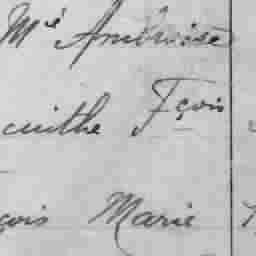 Mie Ambroise
cinthe Fçois
çois Marie